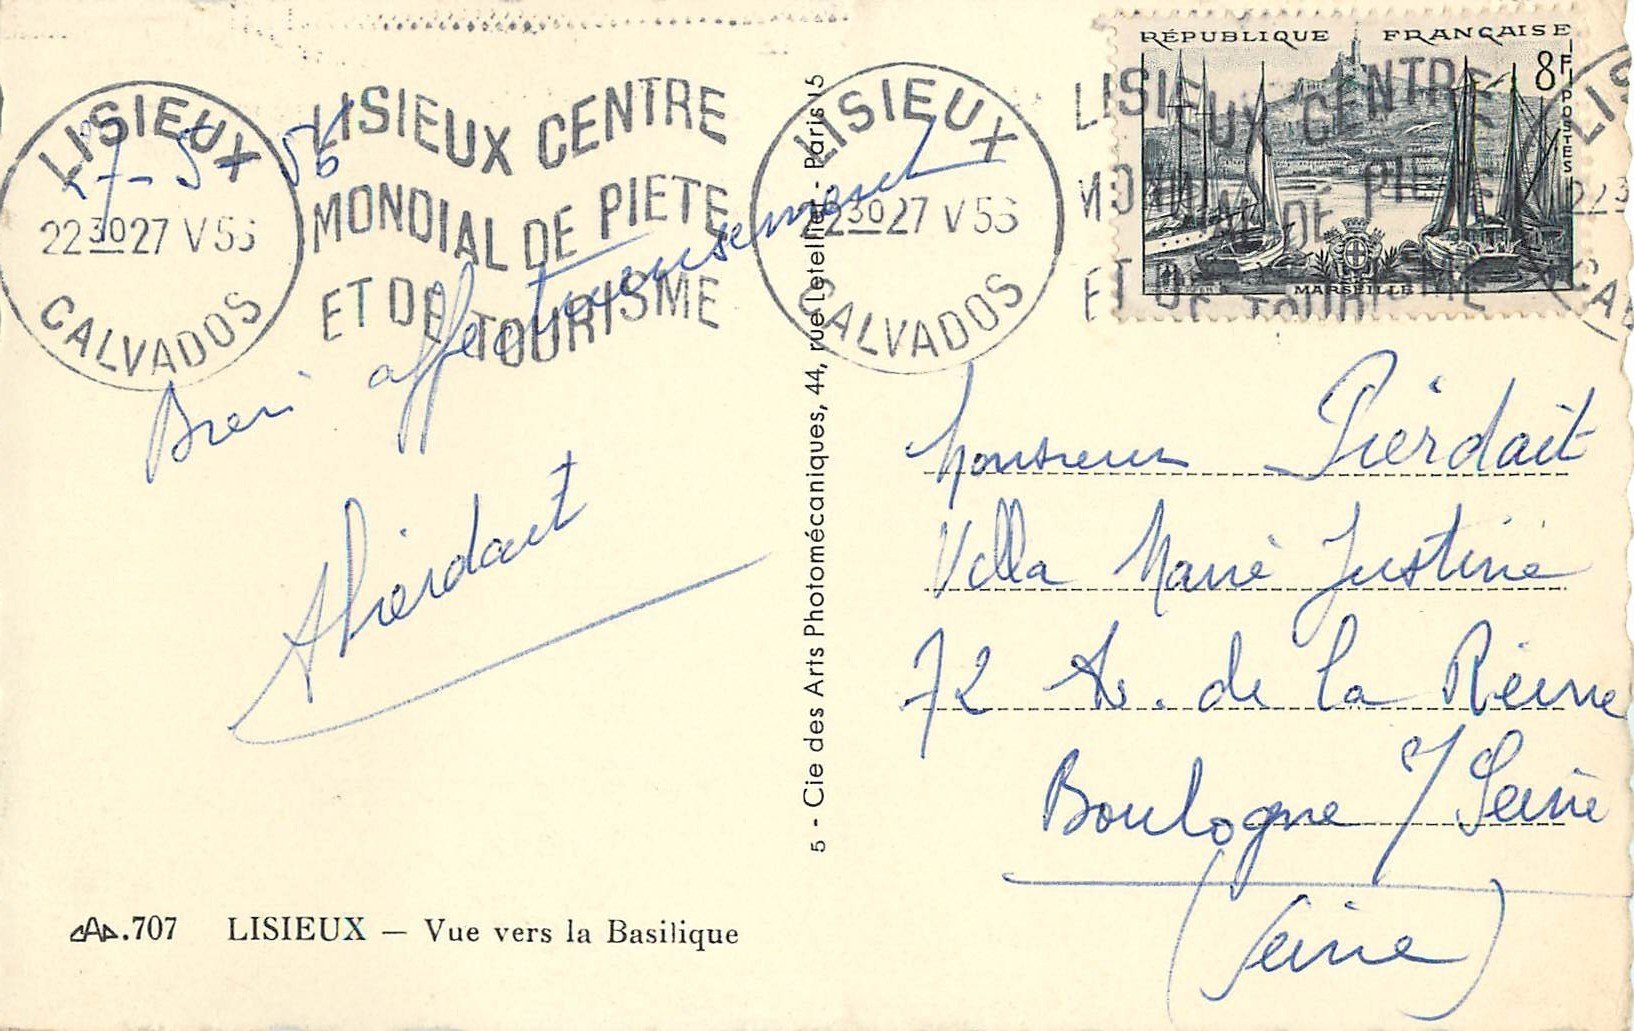 LISIEUX
2230 27 V 56
CALVADOS
LISIEUX CENTRE
MONDIAL DE PIETE
ET DE TOURISME
LISIEUX
2230 27 V 56
CALVADOS
LISIEUX CENTRE
MONDIAL DE PIETE
ET DE TOURISME
RÉPUBLIQUE FRANÇAISE
8F
POSTES
MARSEILLE
27-5-56
Bien affectueusement
Pierdait
Monsieur Pierdait
Villa Marie Justine
72 Av. de la Reine
Boulogne / Seine
(Seine)
5 - Cie des Arts Photomécaniques, 44, rue Letellier - Paris 15
CAP.707 LISIEUX — Vue vers la Basilique